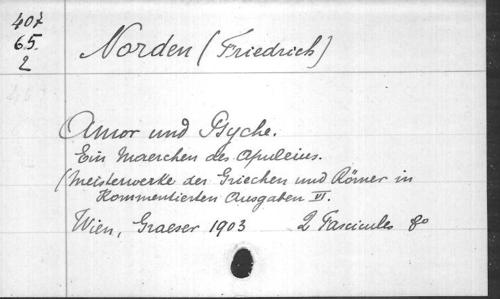 407
65.
2
Norden (Friedrich)
Amor und Psyche.
Ein Maerchen des Apuleius.
(Meisterwerke der Griechen und Römer in
Kommentierten Ausgaben VI.
Wien, Graeser 1903 2 Fascicules 8o